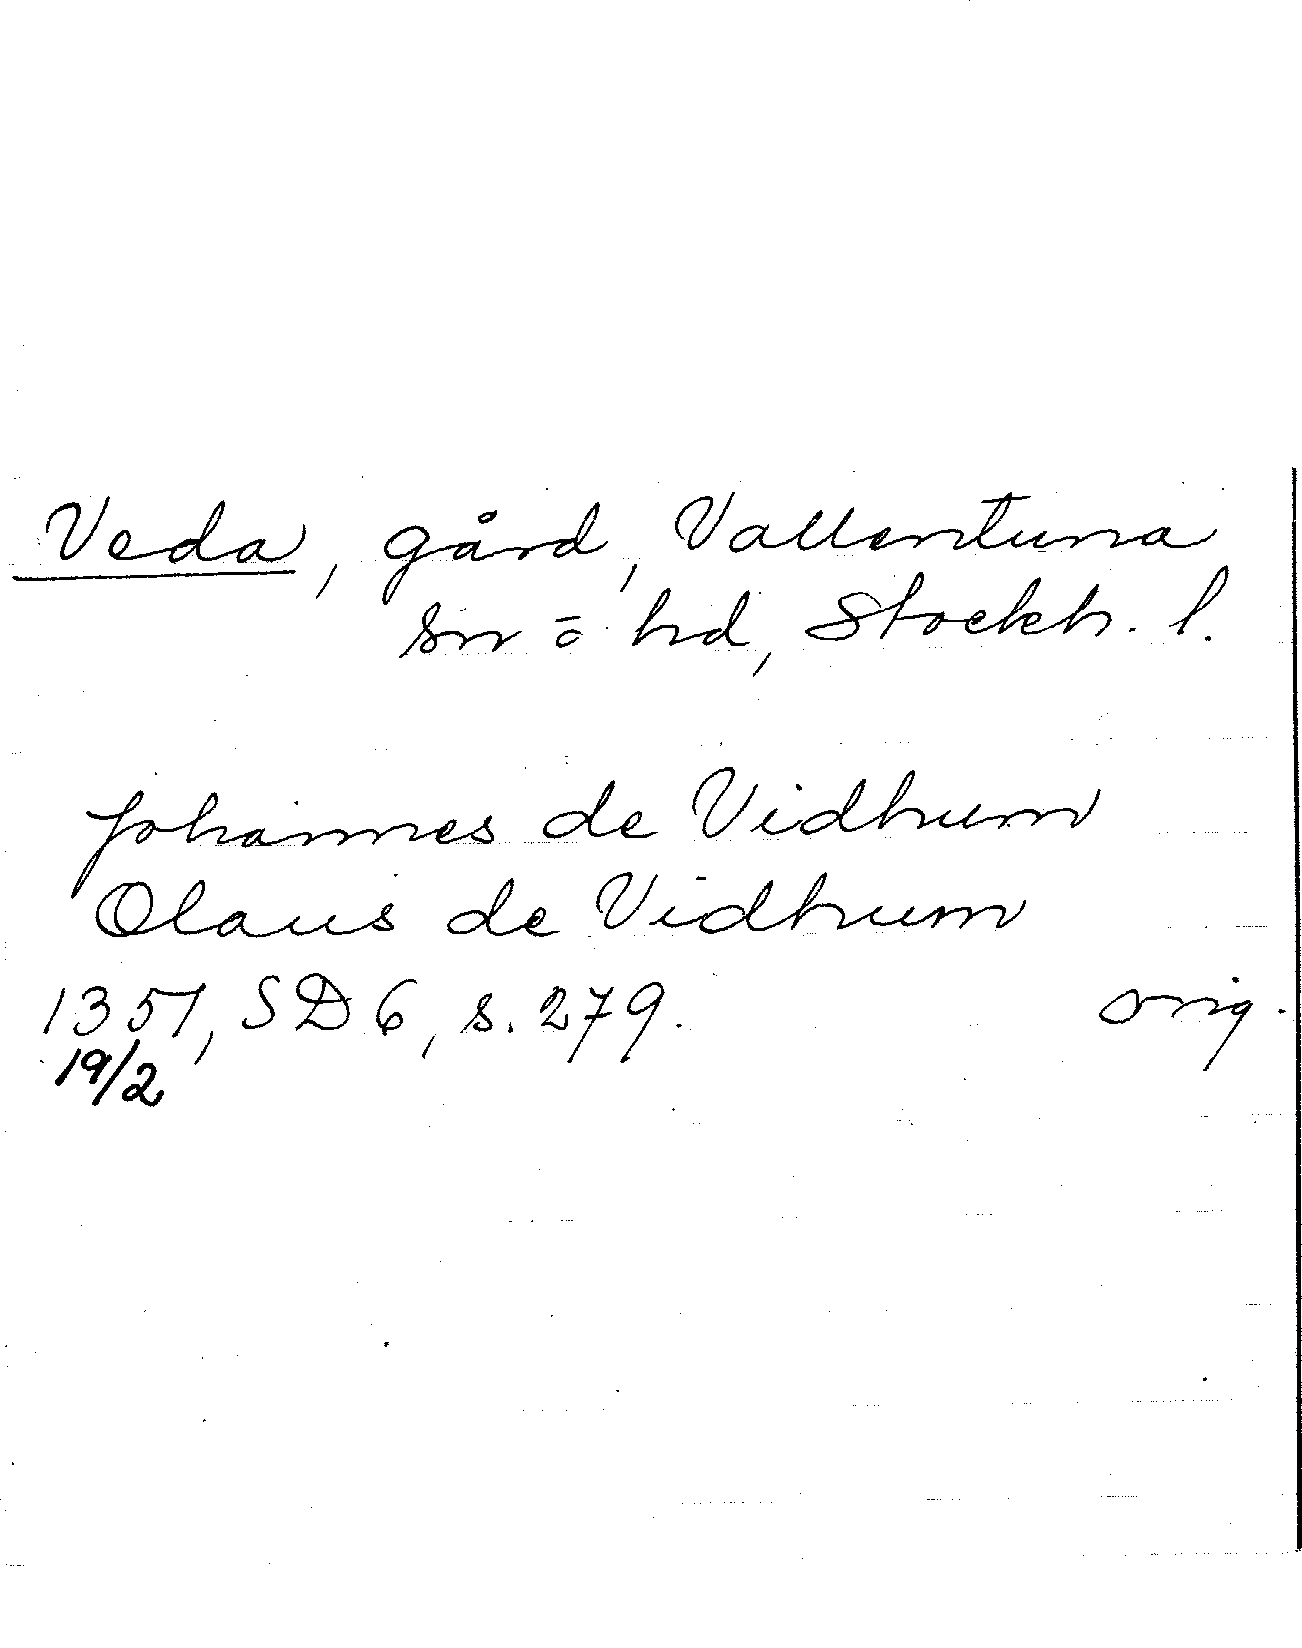 Veda, gård, Vallentuna
sn o hd, Stockh. l.
Johannes de Vidhum
Olaus de Vidhum
1351, SD 6, s. 279. orig.
19/2